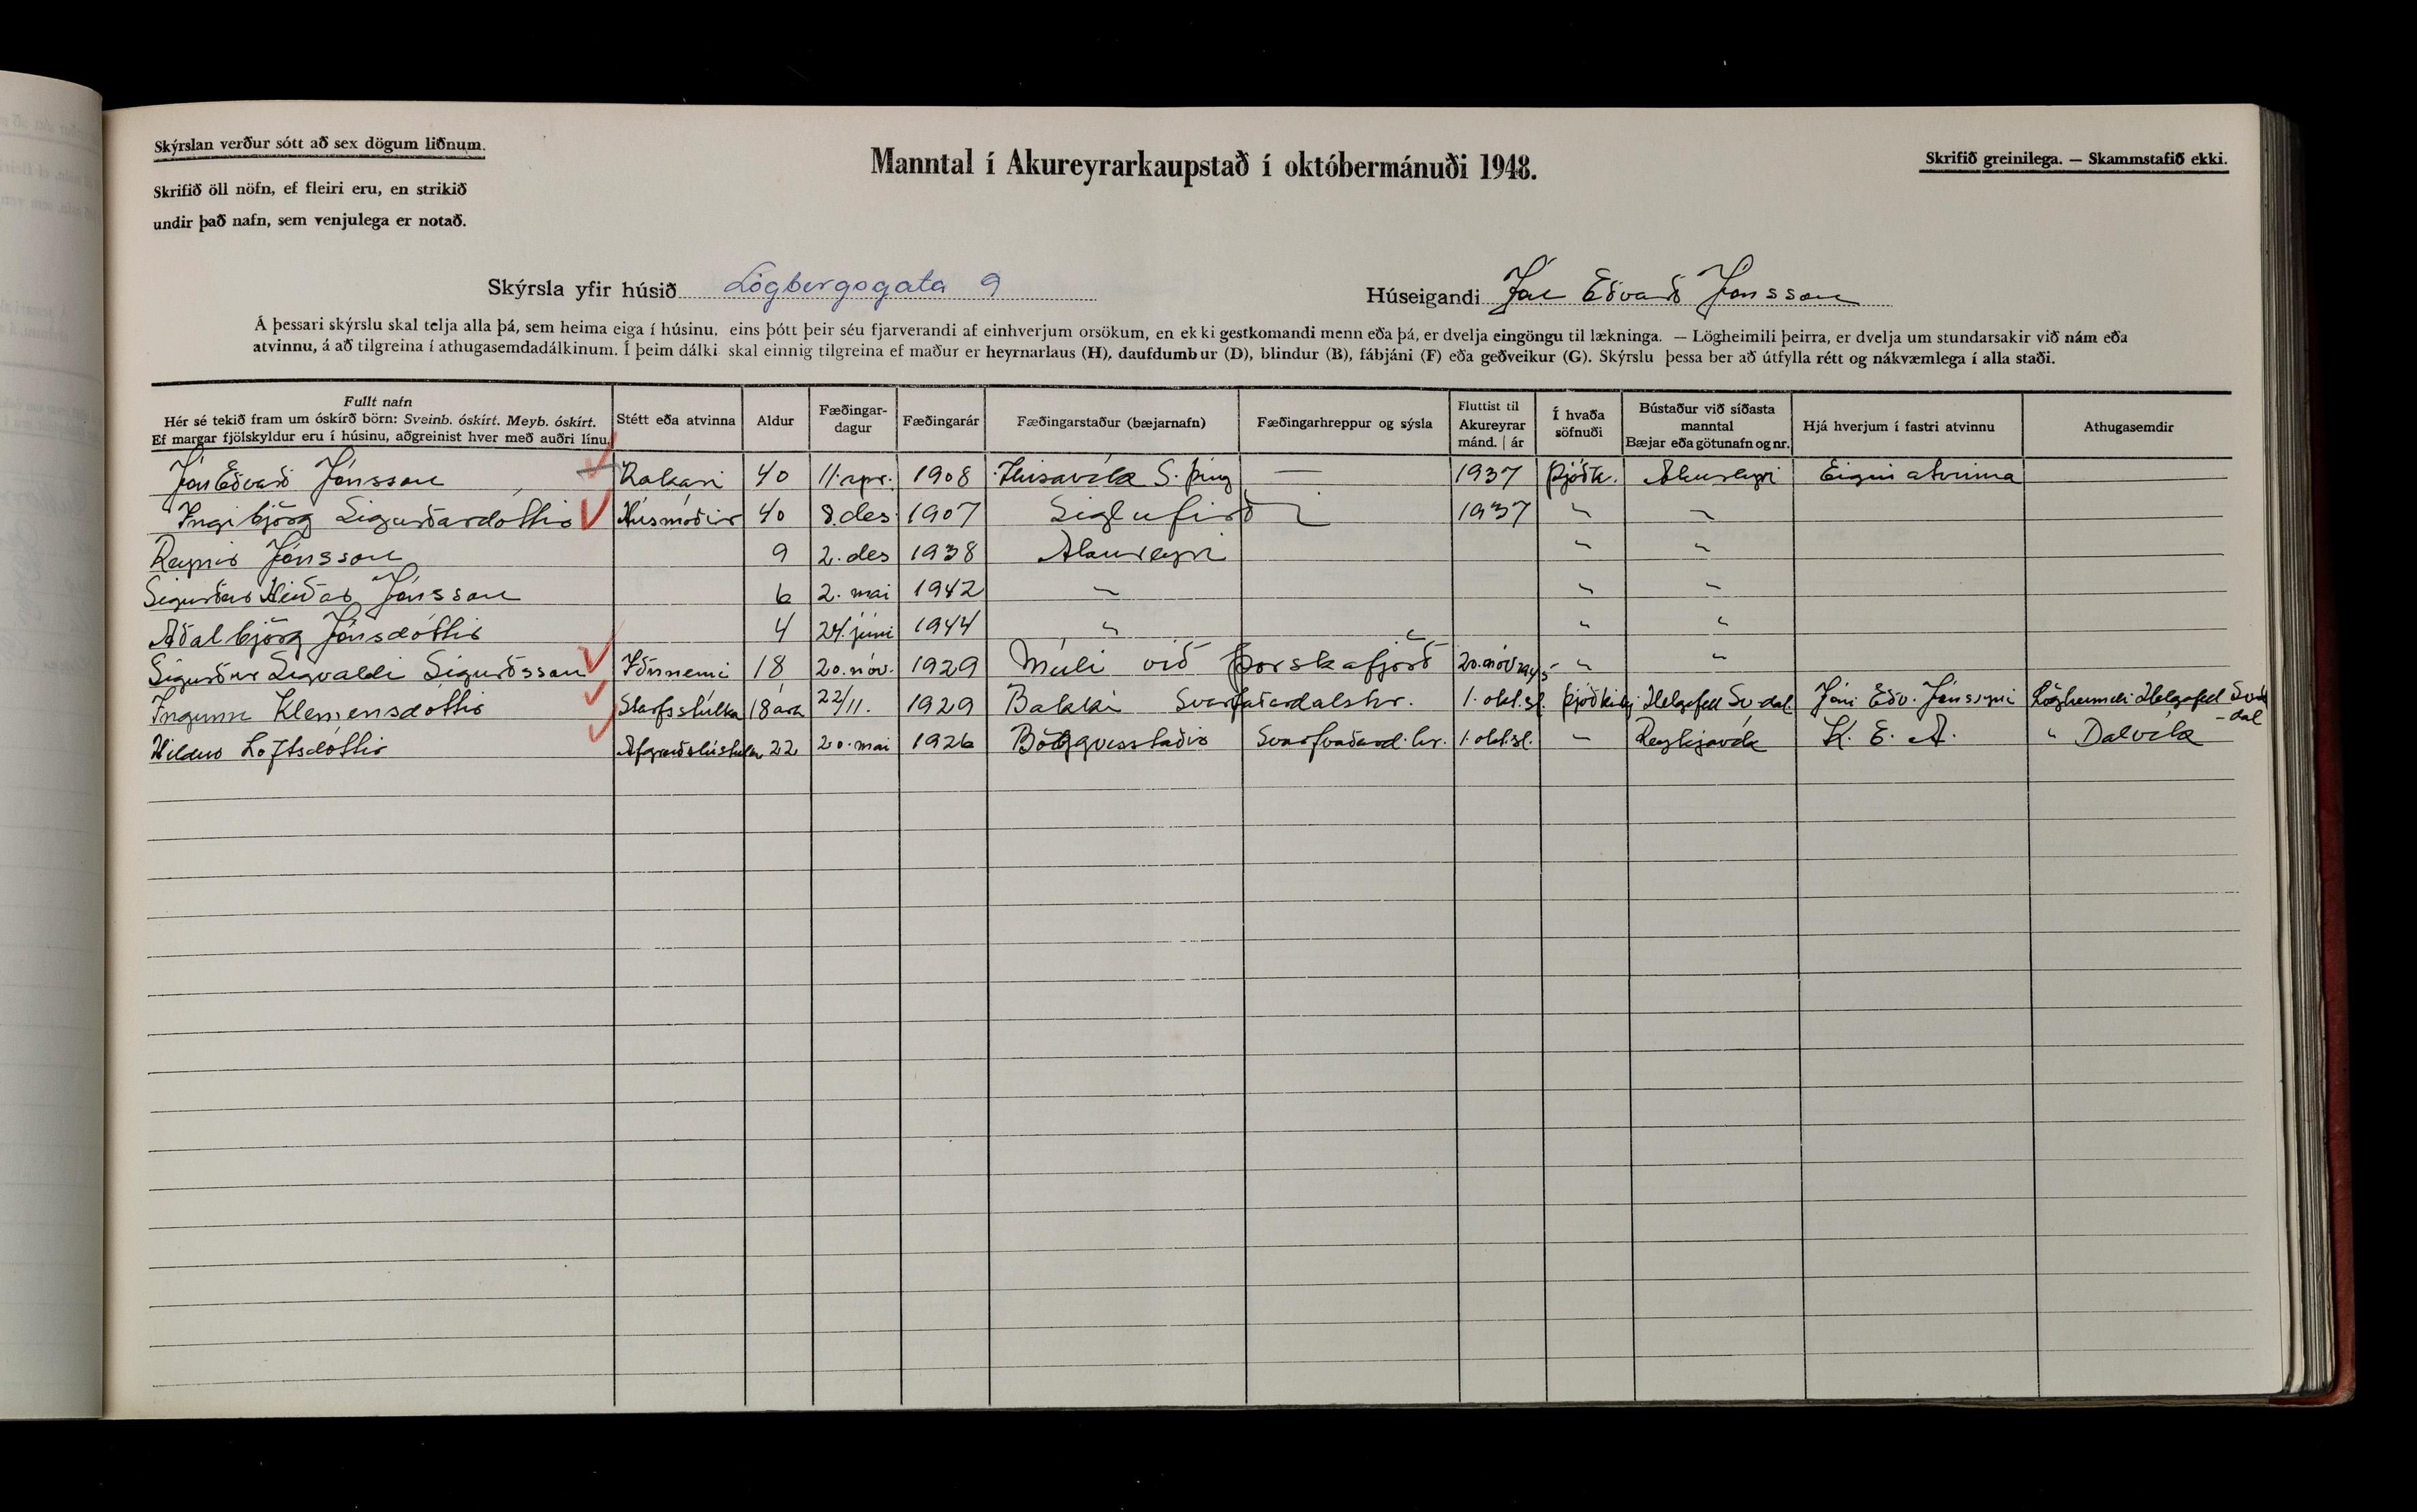 Skýrslan verður sótt að sex dögum liðnum.
Skrifið öll nöfn, ef fleiri eru, en strikið
undir það nafn, sem venjulega er notað.
Manntal í Akureyrarkaupstað í októbermánuði 1948.
Skrifið greinilega. — Skammstafið ekki.
Skýrsla yfir húsið Lögbergsgata 9
Húseigandi Jón Eðvarð Jónsson
Á þessari skýrslu skal telja alla þá, sem heima eiga í húsinu, eins þótt þeir séu fjarverandi af einhverjum orsökum, en ekki gestkomandi menn eða þá, er dvelja eingöngu til lækninga. — Lögheimili þeirra, er dvelja um stundarsakir við nám eða
atvinnu, á að tilgreina í athugasemdadálkinum. Í þeim dálki skal einnig tilgreina ef maður er heyrnarlaus (H), daufdumbur (D), blindur (B), fábjáni (F) eða geðveikur (G). Skýrslu þessa ber að útfylla rétt og nákvæmlega í alla staði.
Fullt nafn
Hér sé tekið fram um óskírð börn: Sveinb. óskírt. Meyb. óskírt.
Ef margar fjölskyldur eru í húsinu, aðgreinist hver með auðri línu.
Stétt eða atvinna
Aldur
Fæðingar-
dagur
Fæðingarár
Fæðingarstaður (bæjarnafn)
Fæðingarhreppur og sýsla
Fluttist til
Akureyrar
mánd. | ár
Í hvaða
söfnuði
Bústaður við síðasta
manntal
Bæjar eða götunafn og nr.
Hjá hverjum í fastri atvinnu
Athugasemdir
Jón Eðvarð Jónsson Rakari 40 11. apr. 1908 Húsavík S. Þing — 1937 Þjóðk. Akureyri Eigin atvinna
Ingibjörg Sigurðardóttir Húsmóðir 40 8. des. 1907 Siglufirð 1937 " "
Reynir Jónsson 9 2. des 1938 Akureyri " "
Sigurður Heiðar Jónsson 6 2. mai 1942 " " "
Aðalbjörg Jónsdóttir 4 24. júni 1944 " " "
Sigurður Sigvaldi Sigurðsson Iðnnemi 18 20. nóv. 1929 Múli við Þorskafjörð 20. nóv " "
Ingunn Klemensdóttir Starfsstúlka 18 ára 22/11. 1929 Bakki Svarfaðardalshr. 1. okt. sl. Þjóðkirkj Helgafell Sv-dal Jóni Eðv. Jónssyni Lögheimili Helgafell Svarf
-dal
Hildur Loftsdóttir Afgreiðslústulka 22 20. mai 1926 Böggvisstaðir Svarfvaðard. hr. 1. okt. sl. " Reykjavík K. E. A. " Dalvík